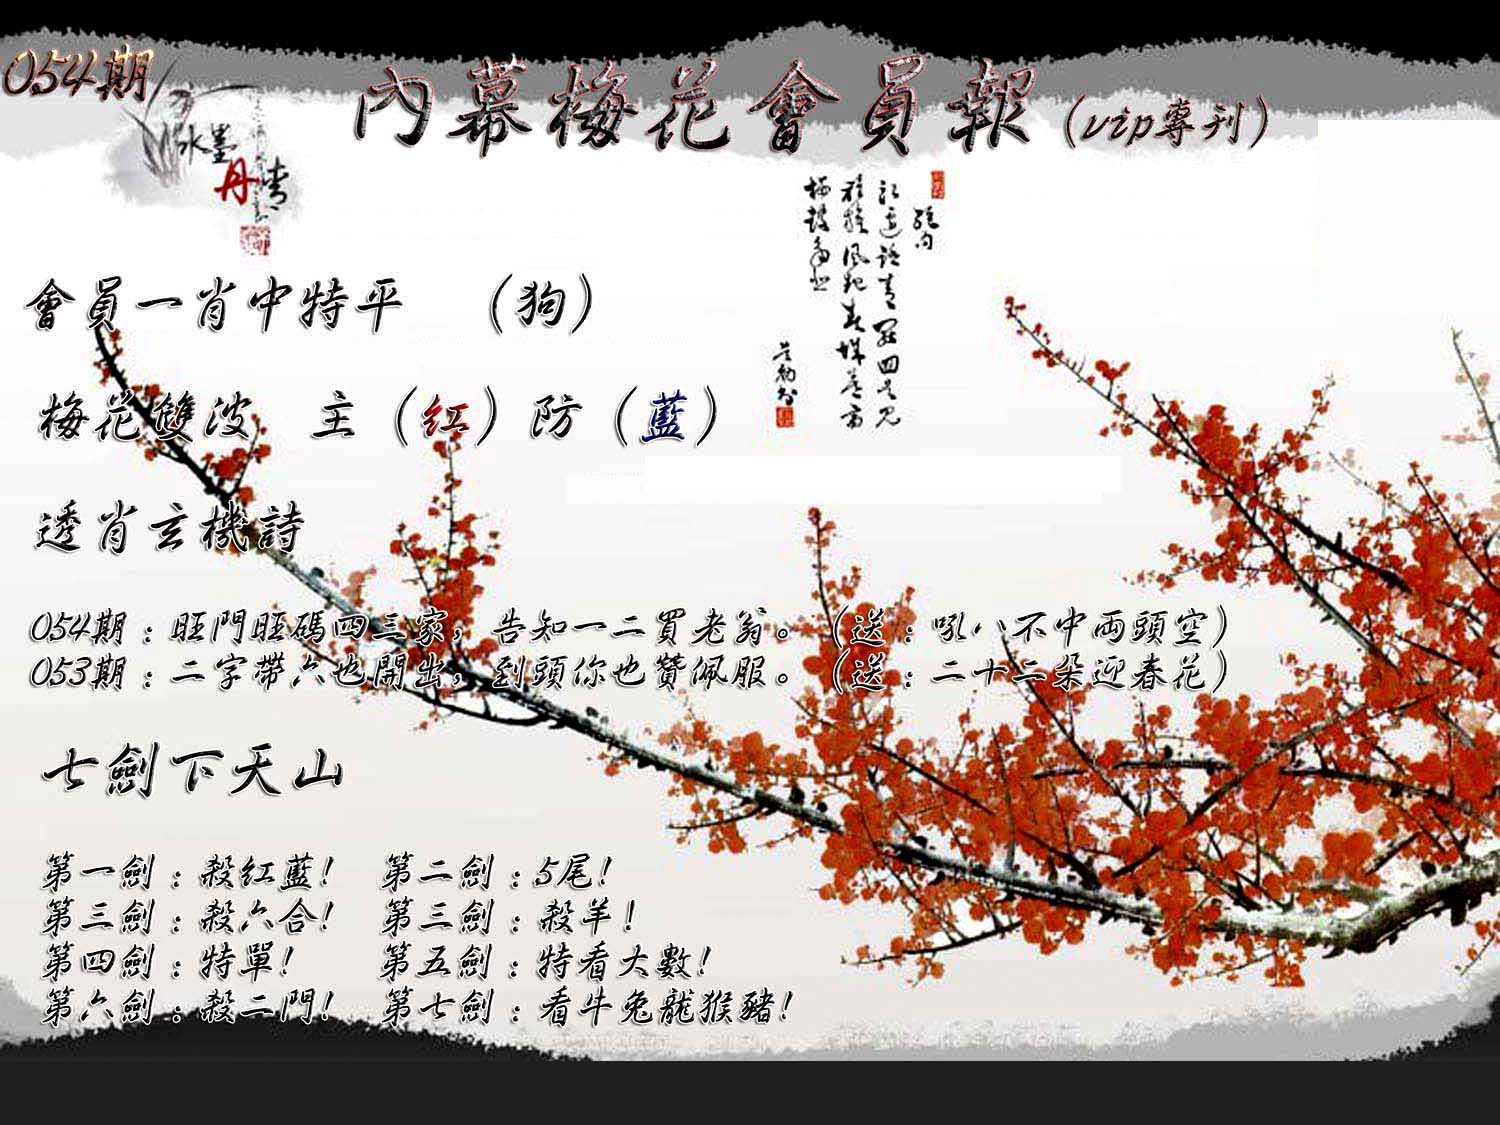 054期
內幕梅花會員報（vip專刊）
水墨
丹青
絕句
會員一肖中特平 （狗）
梅花雙波 主（紅）防（藍）
透肖玄機詩
054期：旺門旺碼四三家，告知一二買老翁。（送：吼八不中兩頭空）
053期：二字帶六也開出，到頭你也贊佩服。（送：二十二朵迎春花）
七劍下天山
第一劍：殺紅藍！ 第二劍：5尾！
第三劍：殺六合！ 第三劍：殺羊！
第四劍：特單！ 第五劍：特看大數！
第六劍：殺二門！ 第七劍：看牛兔龍猴豬！